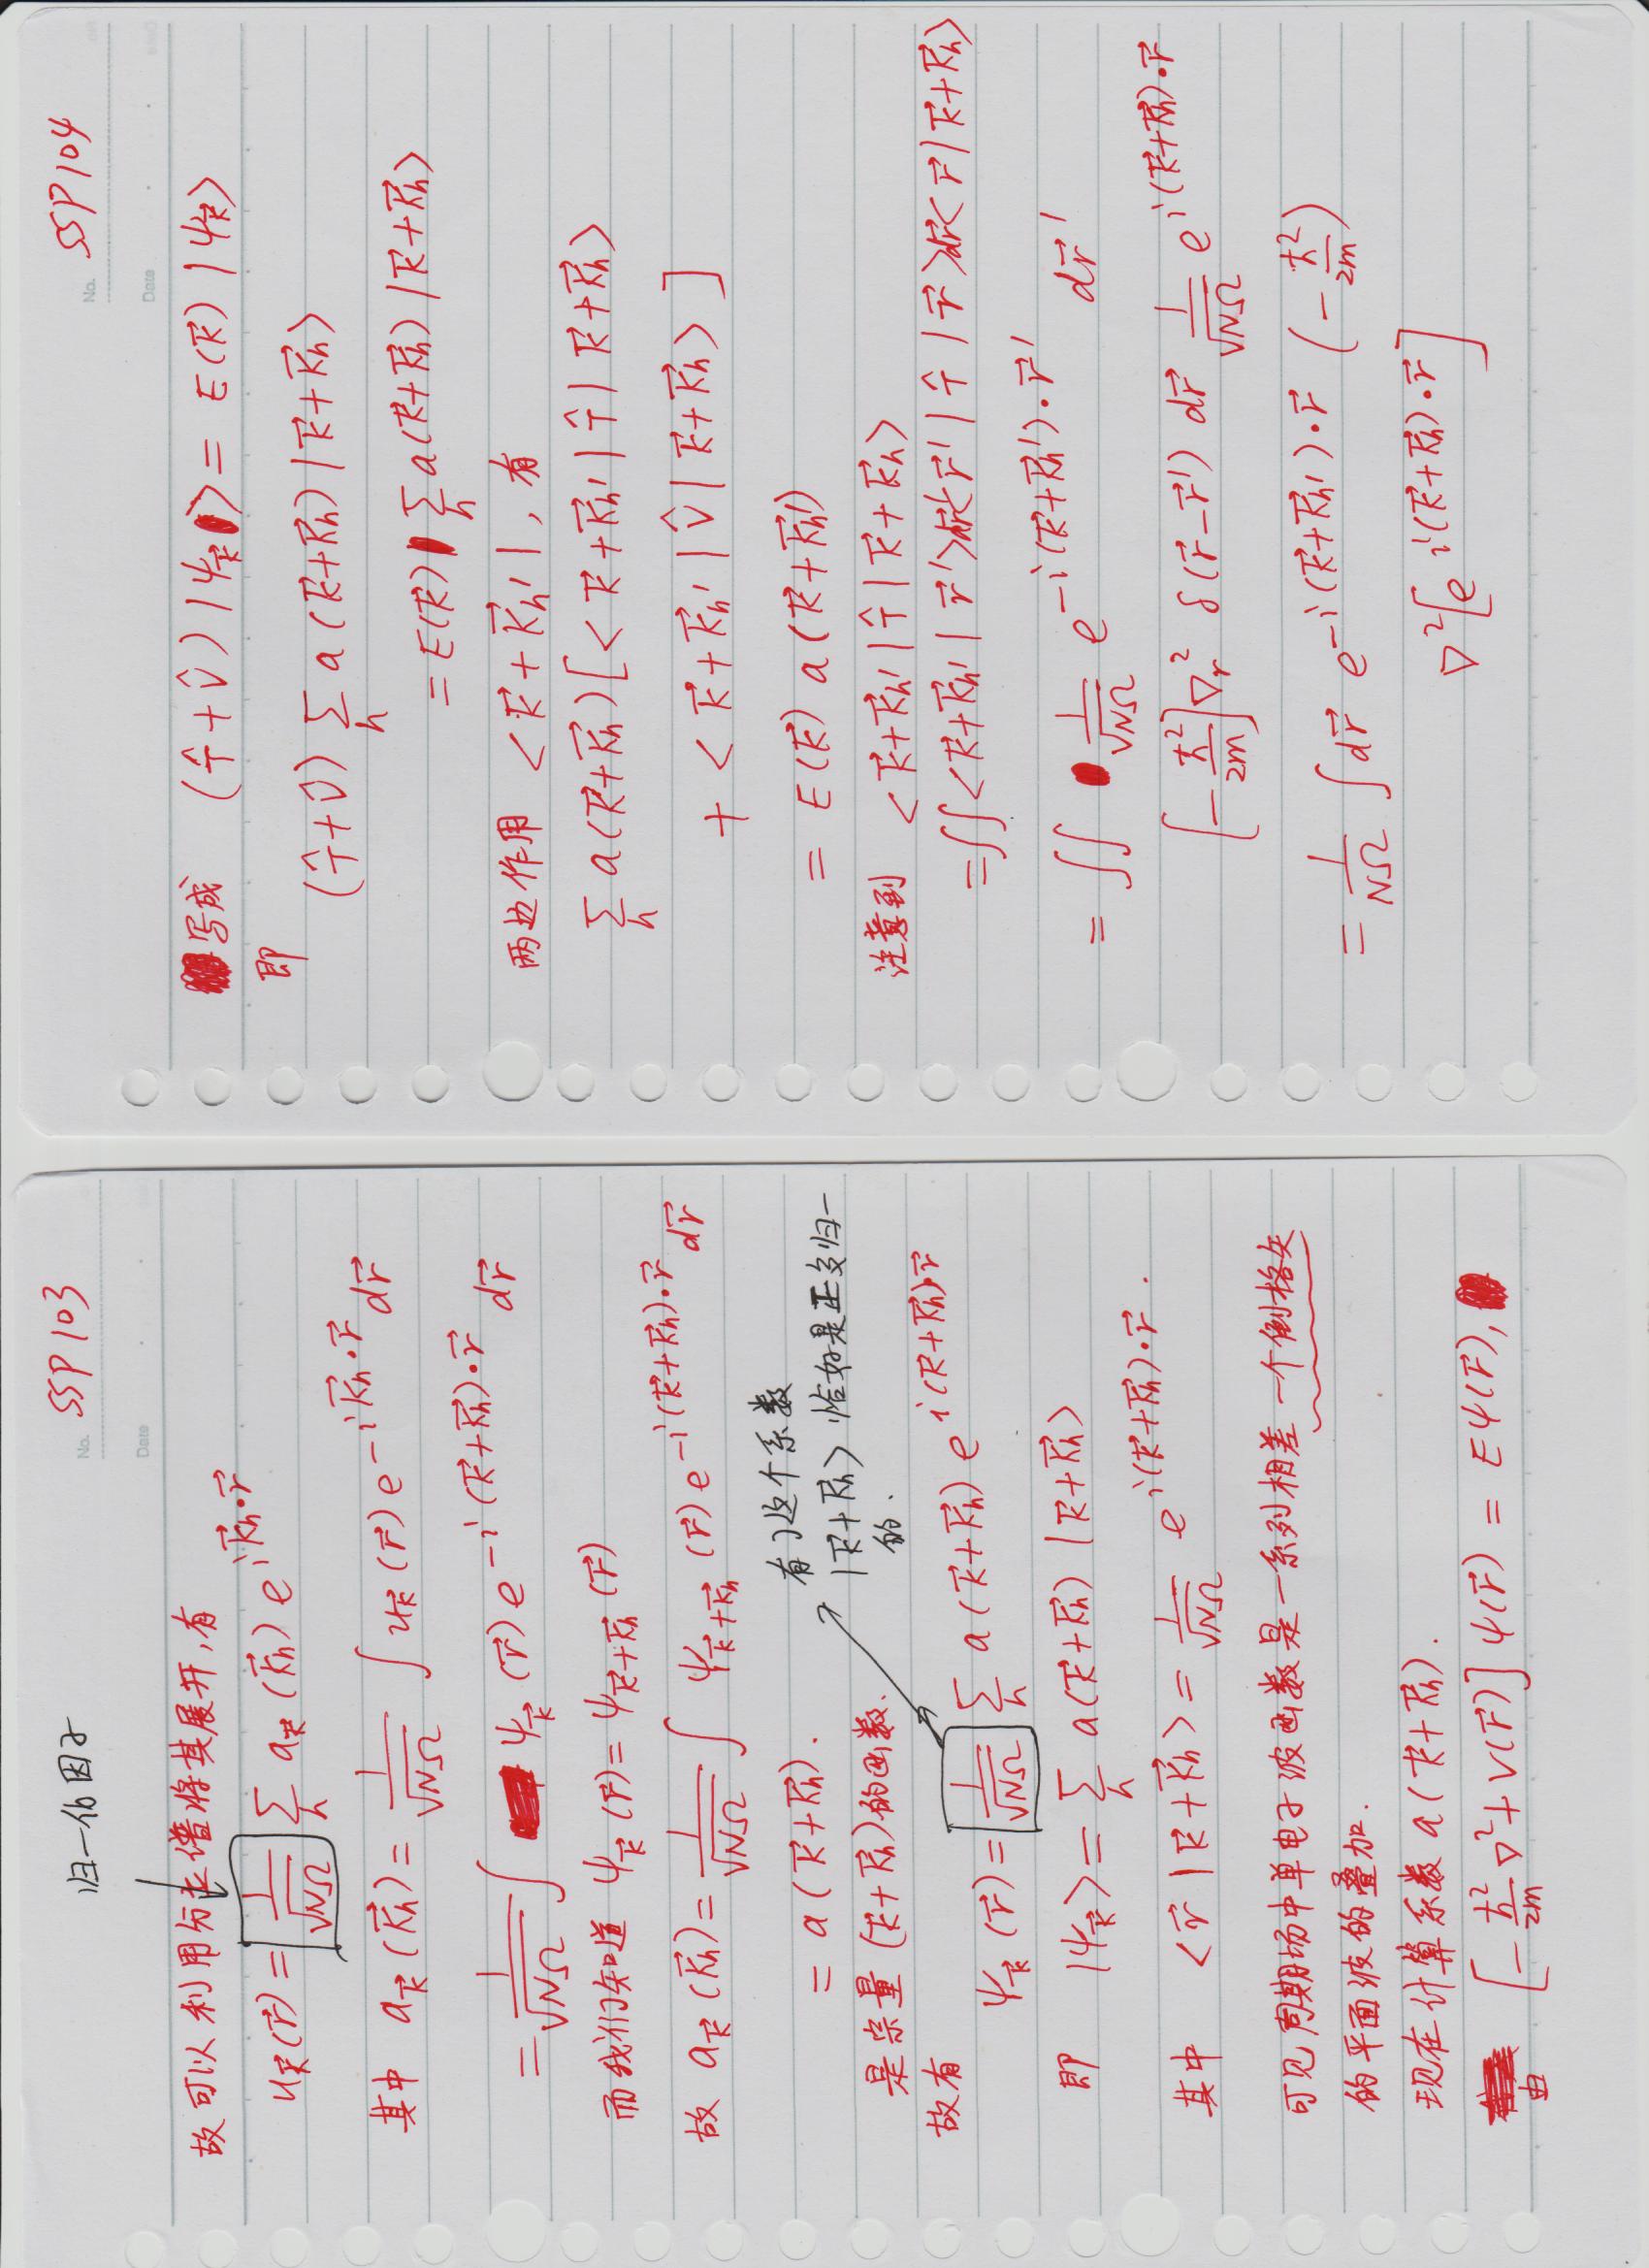 归一化因子
SSP 103
No.
Date
故可以利用分立谱将其展开,有
u_{\vec{k}}(\vec{r}) = \frac{1}{\sqrt{NΩ}} \sum_h a_{\vec{k}}(\vec{K}_h) e^{i\vec{K}_h·\vec{r}}
其中 a_{\vec{k}}(\vec{K}_h) = \frac{1}{\sqrt{NΩ}} ∫ u_{\vec{k}}(\vec{r}) e^{-i\vec{K}_h·\vec{r}} d\vec{r}
= \frac{1}{\sqrt{NΩ}} ∫ ψ_{\vec{k}}(\vec{r}) e^{-i(\vec{k}+\vec{K}_h)·\vec{r}} d\vec{r}
而我们知道 ψ_{\vec{k}}(\vec{r}) = ψ_{\vec{k}+\vec{K}_h}(\vec{r})
故 a_{\vec{k}}(\vec{K}_h) = \frac{1}{\sqrt{NΩ}} ∫ ψ_{\vec{k}+\vec{K}_h}(\vec{r}) e^{-i(\vec{k}+\vec{K}_h)·\vec{r}} d\vec{r}
= a(\vec{k}+\vec{K}_h).
有了这个系数
|\vec{k}+\vec{K}_h> 恰好是正交归一
的.
是宗量(\vec{k}+\vec{K}_h)的函数.
故有
ψ_{\vec{k}}(\vec{r}) = \frac{1}{\sqrt{NΩ}} \sum_h a(\vec{k}+\vec{K}_h) e^{i(\vec{k}+\vec{K}_h)·\vec{r}}
即 |ψ_{\vec{k}}> = \sum_h a(\vec{k}+\vec{K}_h) |\vec{k}+\vec{K}_h>
其中 <\vec{r}|\vec{k}+\vec{K}_h> = \frac{1}{\sqrt{NΩ}} e^{i(\vec{k}+\vec{K}_h)·\vec{r}}.
可见周期场中单电子波函数是一系列相差一个倒格矢
的平面波的叠加.
现在计算系数 a(\vec{k}+\vec{K}_h).
由 [-\frac{ℏ^2}{2m}∇^2 + V(\vec{r})] ψ(\vec{r}) = Eψ(\vec{r}),
SSP 104
No.
Date
写成 (\hat{T}+\hat{V}) |ψ_{\vec{k}}> = E(\vec{k}) |ψ_{\vec{k}}>
即
(\hat{T}+\hat{V}) \sum_h a(\vec{k}+\vec{K}_h) |\vec{k}+\vec{K}_h>
= E(\vec{k}) \sum_h a(\vec{k}+\vec{K}_h) |\vec{k}+\vec{K}_h>
两边作用 <\vec{k}+\vec{K}_{h'}|, 有
\sum_h a(\vec{k}+\vec{K}_h) [<\vec{k}+\vec{K}_{h'}|\hat{T}|\vec{k}+\vec{K}_h>
+ <\vec{k}+\vec{K}_{h'}|\hat{V}|\vec{k}+\vec{K}_h>]
= E(\vec{k}) a(\vec{k}+\vec{K}_{h'})
注意到 <\vec{k}+\vec{K}_{h'}|\hat{T}|\vec{k}+\vec{K}_h>
= ∫∫ <\vec{k}+\vec{K}_{h'}|\vec{r}'> d\vec{r}' <\vec{r}'|\hat{T}|\vec{r}> d\vec{r} <\vec{r}|\vec{k}+\vec{K}_h>
= ∫∫ \frac{1}{\sqrt{NΩ}} e^{-i(\vec{k}+\vec{K}_{h'})·\vec{r}'} d\vec{r}'
[-\frac{ℏ^2}{2m}]∇_r^2 δ(\vec{r}-\vec{r}') d\vec{r} \frac{1}{\sqrt{NΩ}} e^{i(\vec{k}+\vec{K}_h)·\vec{r}}
= \frac{1}{NΩ} ∫ d\vec{r} e^{-i(\vec{k}+\vec{K}_{h'})·\vec{r}} (-\frac{ℏ^2}{2m})
∇^2 [e^{i(\vec{k}+\vec{K}_h)·\vec{r}}]